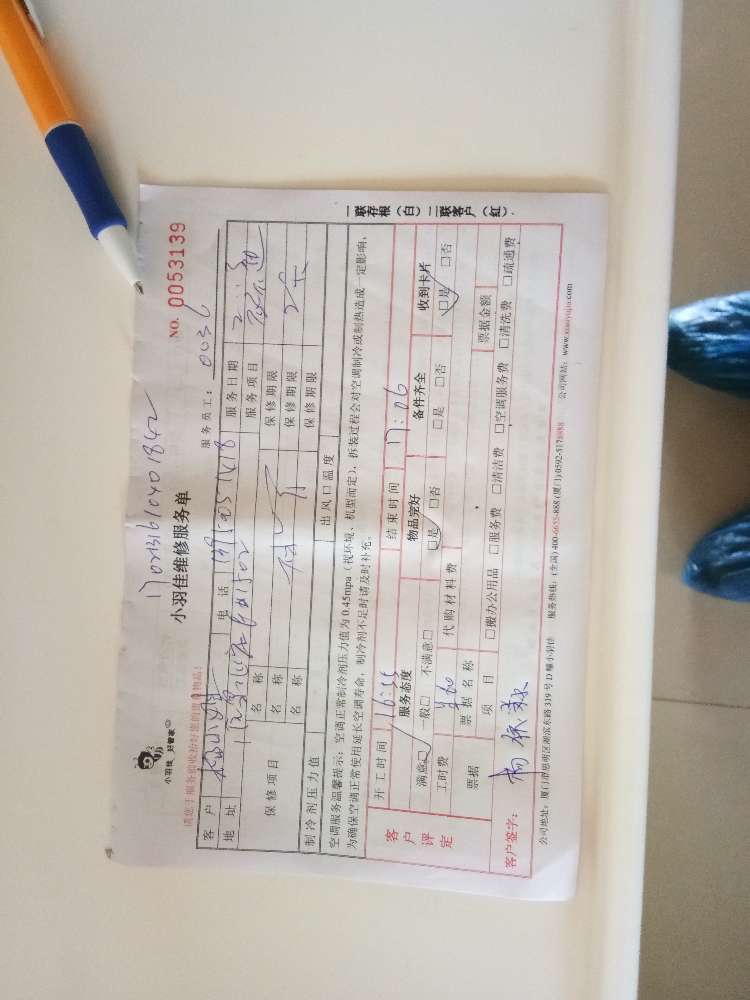 小羽佳 好管家
170213161040 1842
小羽佳维修服务单
NO. 0053139
请您于服务前收拾好您的贵重物品!
服务员工: 0036
客户 电话 服务日期
地址 服务项目
保修项目 名称 保修期限
名称 保修期限
名称 保修期限
制冷剂压力值 出风口温度
空调服务温馨提示:空调正常制冷剂压力值为0.45mpa(视环境、机型而定),拆装过程会对空调制冷或制热造成一定影响,
为确保空调正常使用延长空调寿命,制冷剂不足时请及时补充。
客户评定 开工时间 结束时间 17:06
服务态度 物品完好 备件齐全 收到卡片
满意□ 一般□ 不满意□ □是 □否 □是 □否 □是 □否
工时费 ¥60 代购材料费
票据 票据名称 票据金额
项目 □搬办公用品 □服务费 □清洁费 □空调服务费 □清洗费 □疏通费
客户签字:
公司地址:厦门市思明区湖滨东路319号D幢小羽佳 服务热线:(全国)400-6655-888 (厦门)0592-5178888 公司网站:www.xiaoyujia.com
一联存根(白)二联客户(红)